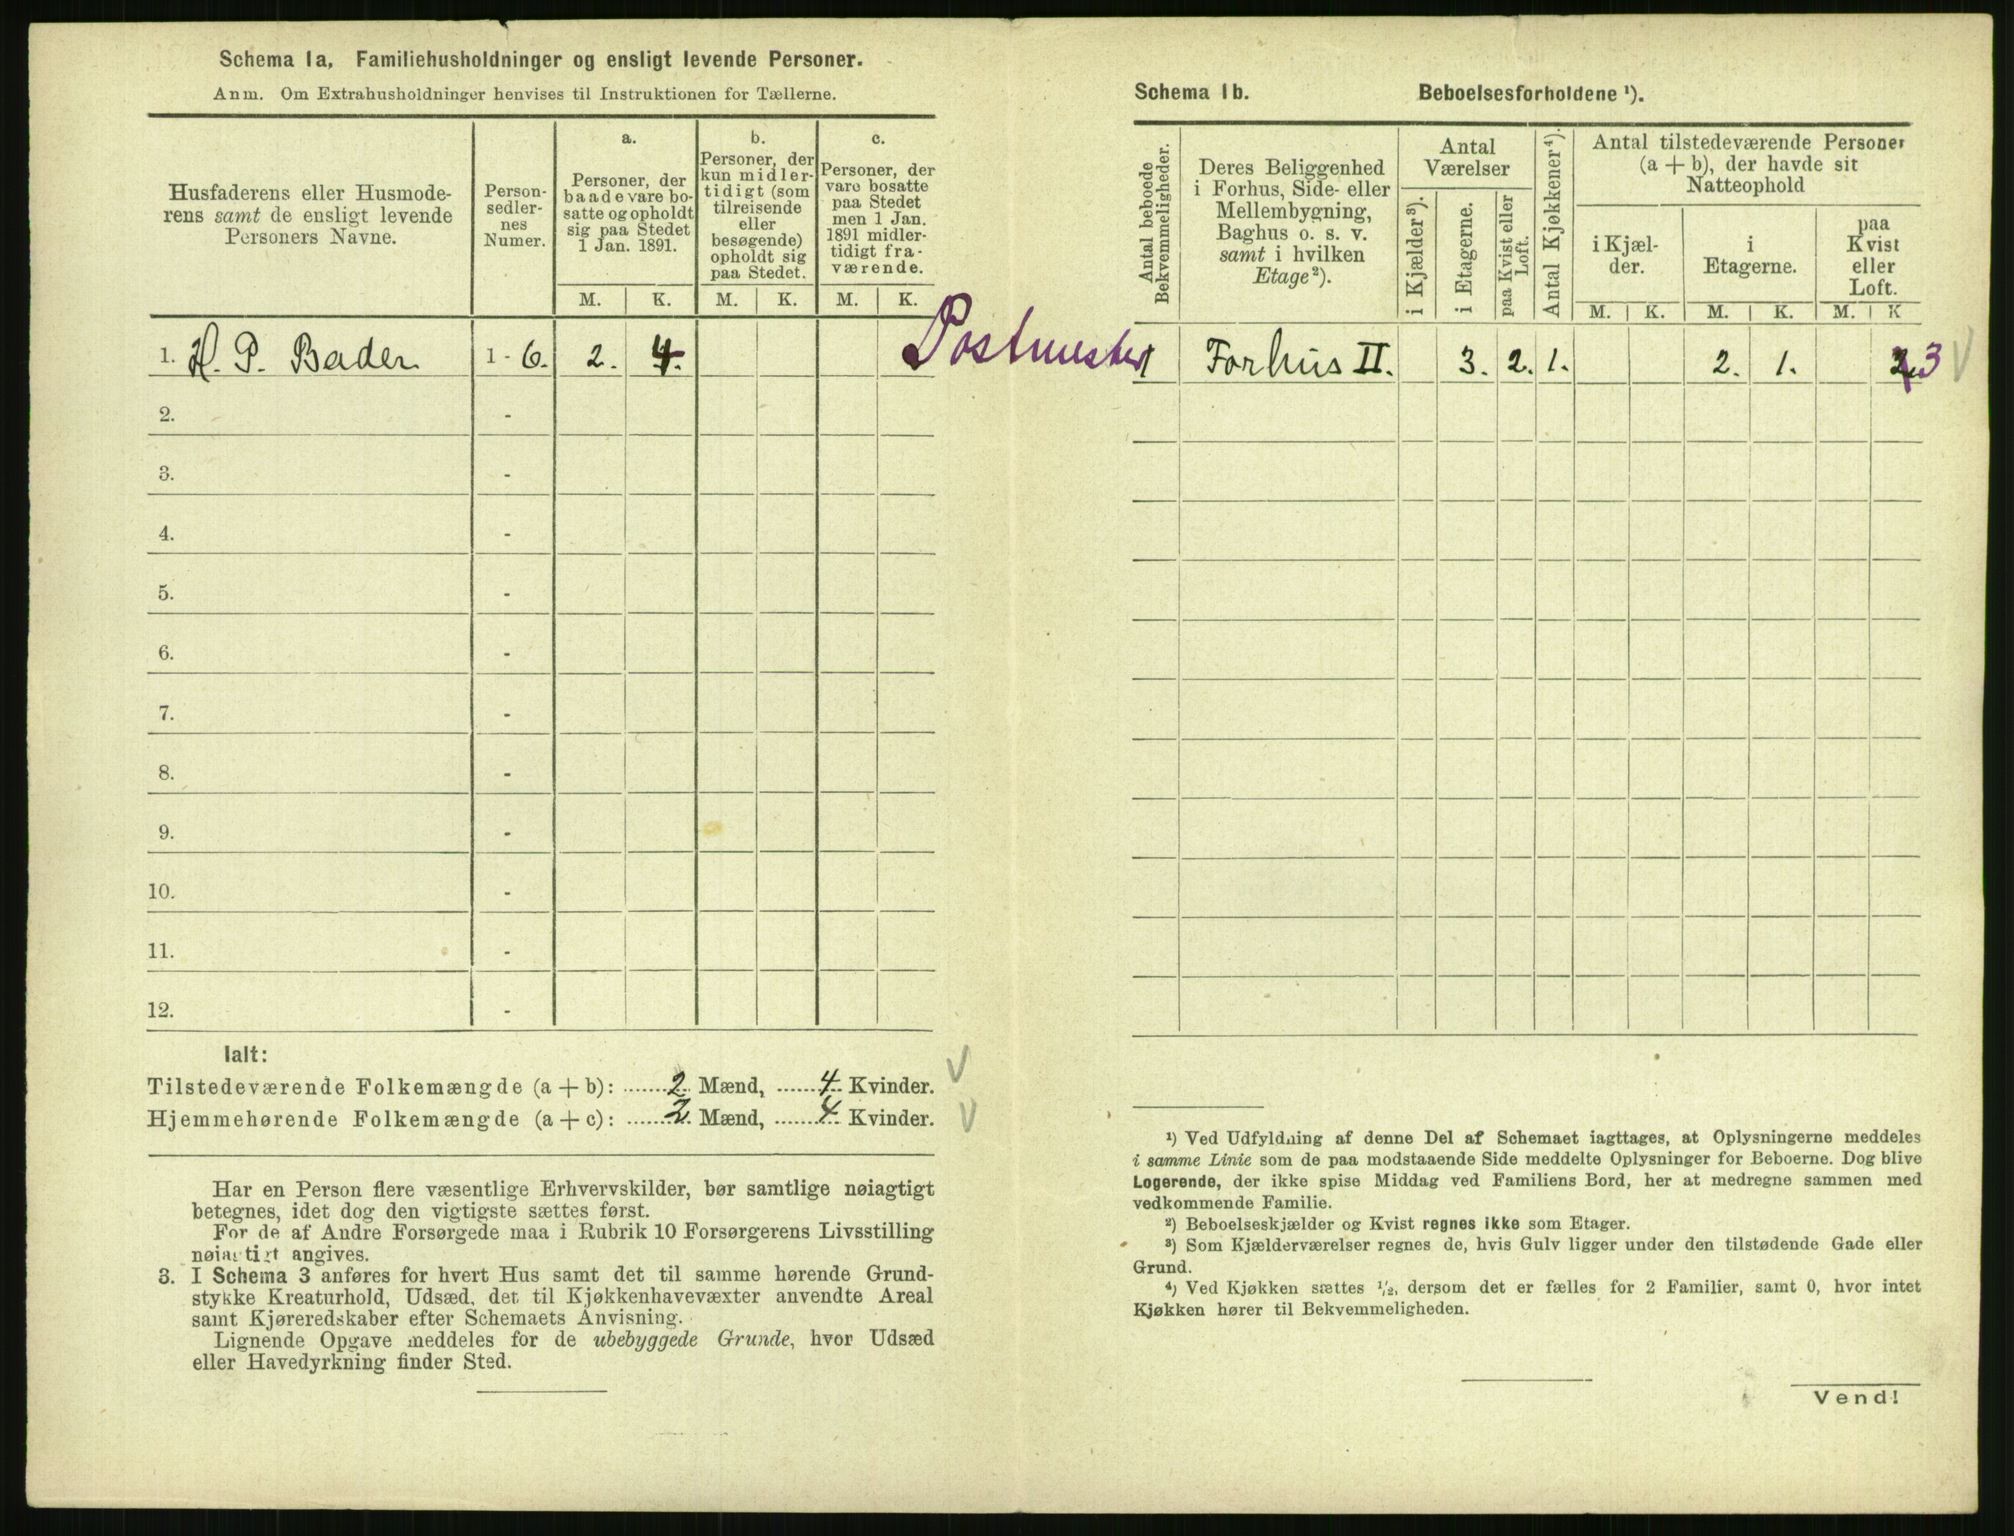 Schema 1a, Familiehusholdninger og ensligt levende Personer.
Anm. Om Extrahusholdninger henvises til Instruktionen for Tællerne.
Husfaderens eller Husmode-
rens samt de ensligt levende
Personers Navne.
Person-
sedler-
nes
Numer.
a.
Personer, der
baade vare bo-
satte og opholdt
sig paa Stedet
1 Jan. 1891.
b.
Personer, der
kun midler-
tidigt (som
tilreisende
eller
besøgende)
opholdt sig
paa Stedet.
c.
Personer, der
vare bosatte
paa Stedet
men 1 Jan.
1891 midler-
tidigt fra-
værende.
M. K. M. K. M. K.
1. H. P. Bader 1 - 6. 2. 4. Postmester
2. -
3. -
4. -
5. -
6. -
7. -
8. -
9. -
10. -
11. -
12. -
Ialt:
Tilstedeværende Folkemængde (a + b): 2 Mænd, 4 Kvinder.
Hjemmehørende Folkemængde (a + c): 2 Mænd, 4 Kvinder.
Har en Person flere væsentlige Erhvervskilder, bør samtlige nøiagtigt
betegnes, idet dog den vigtigste sættes først.
For de af Andre Forsørgede maa i Rubrik 10 Forsørgerens Livsstilling
nøiagtigt angives.
3. I Schema 3 anføres for hvert Hus samt det til samme hørende Grund-
stykke Kreaturhold, Udsæd, det til Kjøkkenhavevæxter anvendte Areal
samt Kjøreredskaber efter Schemaets Anvisning.
Lignende Opgave meddeles for de ubebyggede Grunde, hvor Udsæd
eller Havedyrkning finder Sted.
Schema 1b. Beboelsesforholdene ¹).
Antal beboede
Bekvemmeligheder.
Deres Beliggenhed
i Forhus, Side- eller
Mellembygning,
Baghus o. s. v.
samt i hvilken
Etage²).
Antal
Værelser
i Kjælder³).
i Etagerne.
paa Kvist eller
Loft.
Antal Kjøkkener⁴).
Antal tilstedeværende Personer
(a + b), der havde sit
Natteophold
i Kjæl-
der.
i
Etagerne.
paa
Kvist
eller
Loft.
M. K. M. K. M. K
1 Forhus II. 3. 2. 1. 2. 1. 3
¹) Ved Udfyldning af denne Del af Schemaet iagttages, at Oplysningerne meddeles
i samme Linie som de paa modstaaende Side meddelte Oplysninger for Beboerne. Dog blive
Logerende, der ikke spise Middag ved Familiens Bord, her at medregne sammen med
vedkommende Familie.
²) Beboelseskjælder og Kvist regnes ikke som Etager.
³) Som Kjælderværelser regnes de, hvis Gulv ligger under den tilstødende Gade eller
Grund.
⁴) Ved Kjøkken sættes ¹/₂, dersom det er fælles for 2 Familier, samt 0, hvor intet
Kjøkken hører til Bekvemmeligheden.
Vend!